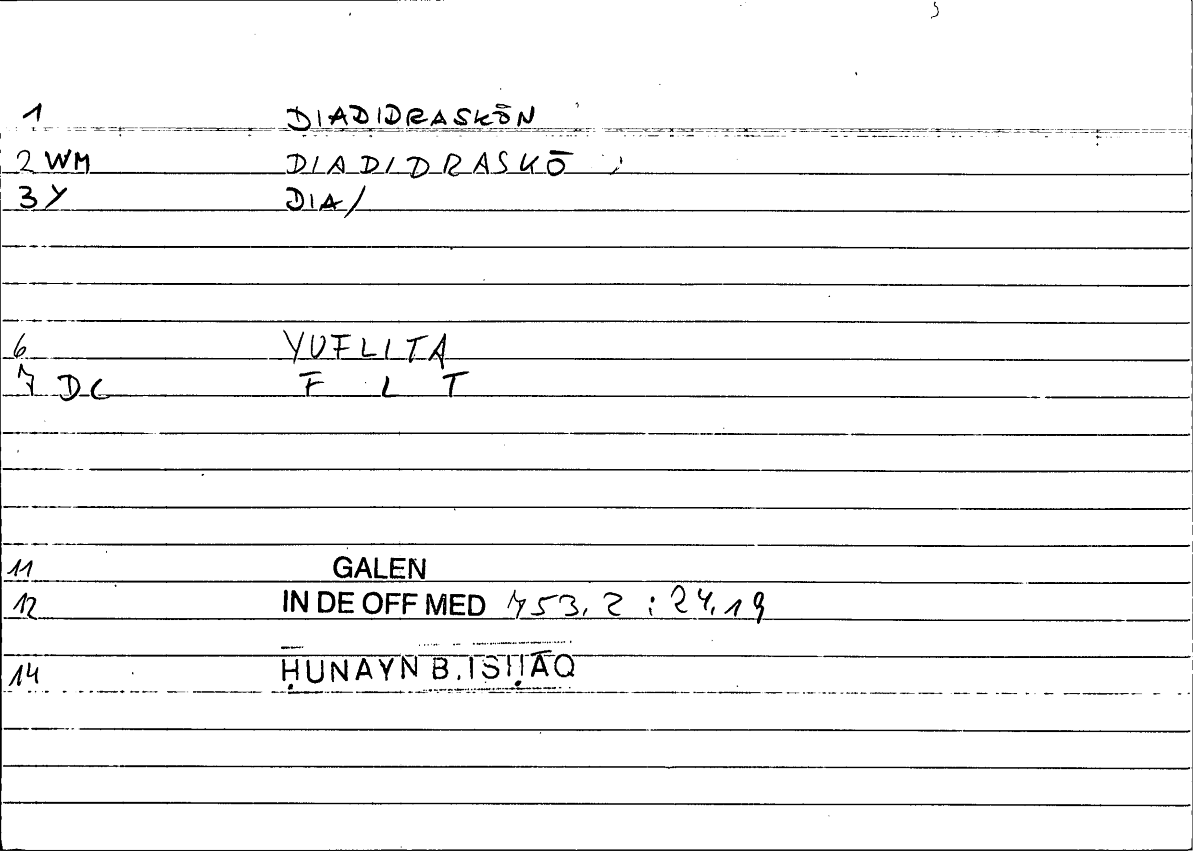 1 DIADIDRASKŌN
2 WM DIADIDRASKŌ
3 Y DIA/
6 YUFLITA
7 DC F L T
11 GALEN
12 IN DE OFF MED 753.2 : 24.19
14 ḤUNAYN B.ISḤĀQ